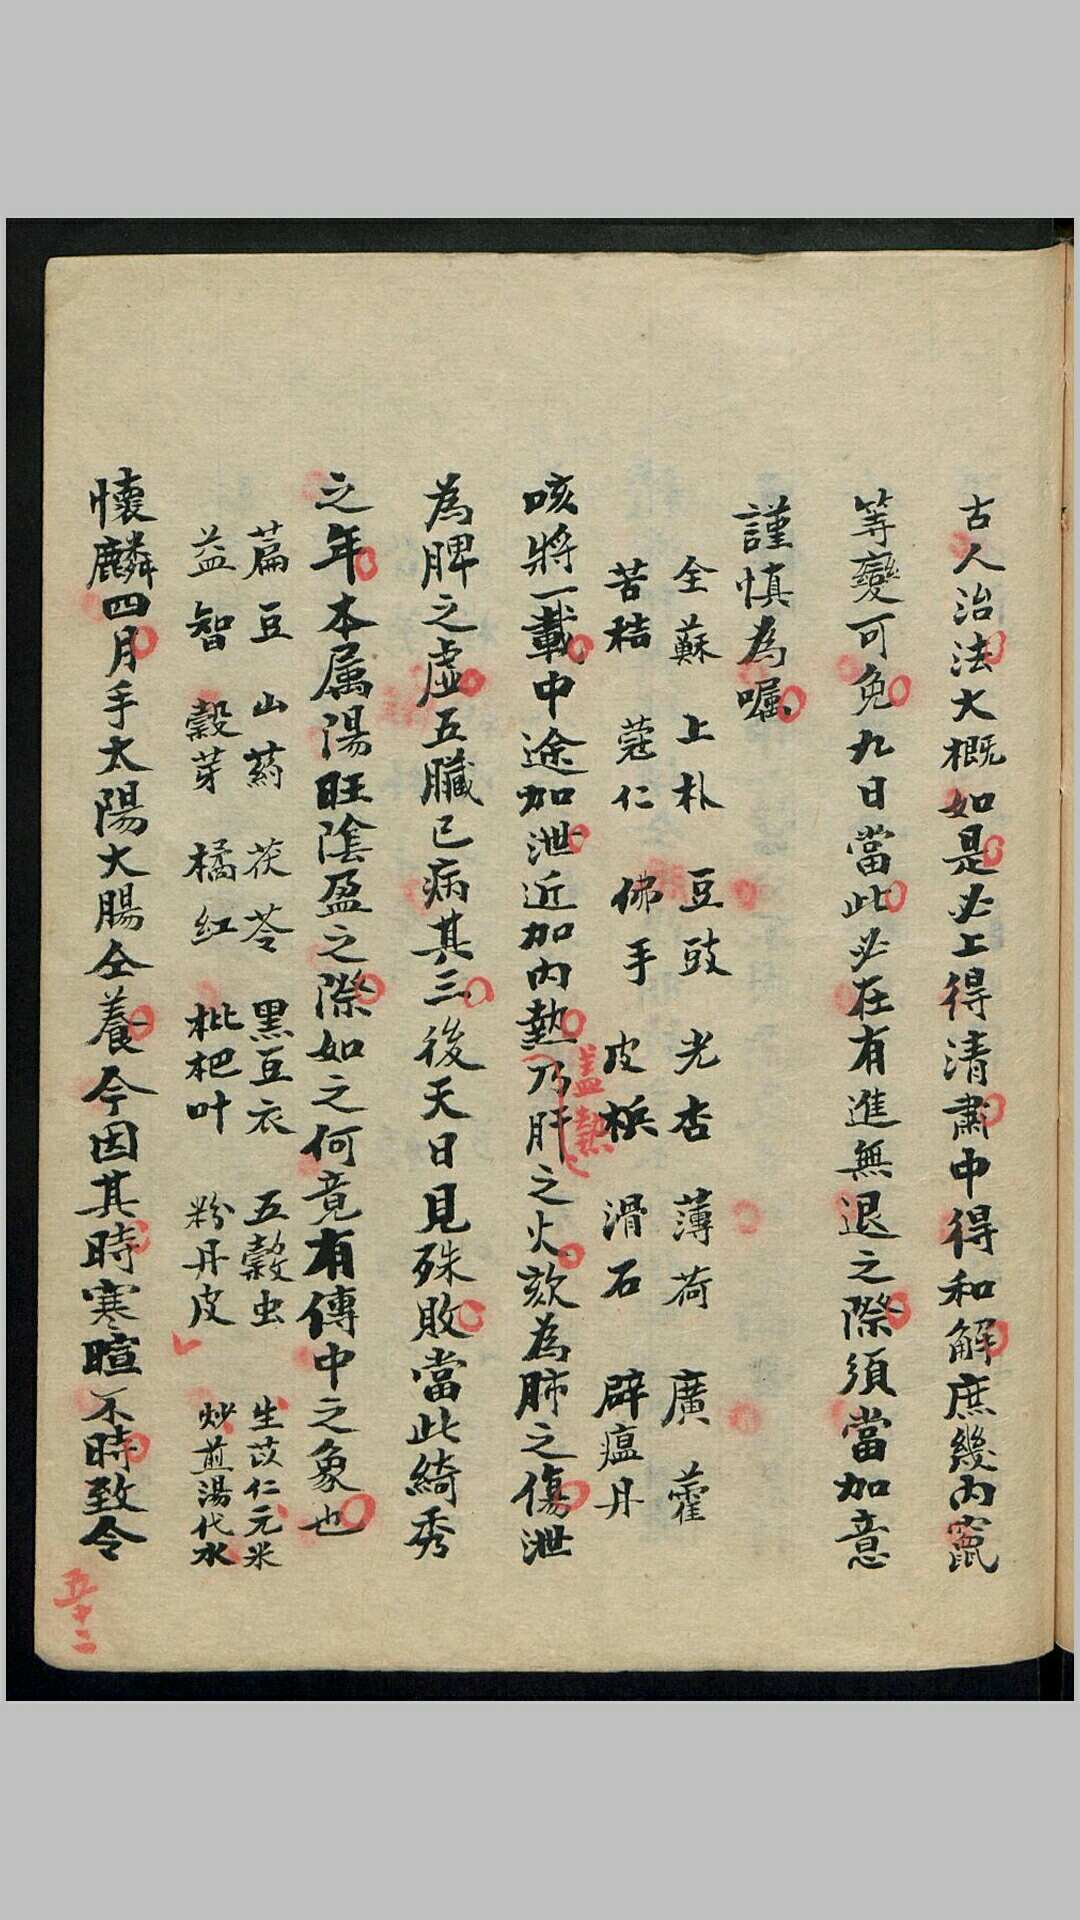 古人治法大概如是必上得清肅中得和解庶幾內竄
等變可免九日當此必在有進無退之際須當加意
謹慎為囑
全蘇 上朴 豆豉 光杏 薄荷 廣藿
苦秸 蔻仁 佛手 皮梹 滑石 辟瘟丹
咳將一載中途加泄近加內熱乃肝之火欬為肺之傷泄
盖熱
為脾之虛五臟已病其三後天日見殊敗當此綺秀
之年本属陽旺陰盈之際如之何竟有傳中之象也
萹豆 山葯 茯苓 黑豆衣 五榖虫 生苡仁元米
益智 糓芽 橘红 枇杷叶 粉丹皮 炒煎湯代水
懷麟四月手太陽大腸仝養今因其時寒暄不時致令
五十二